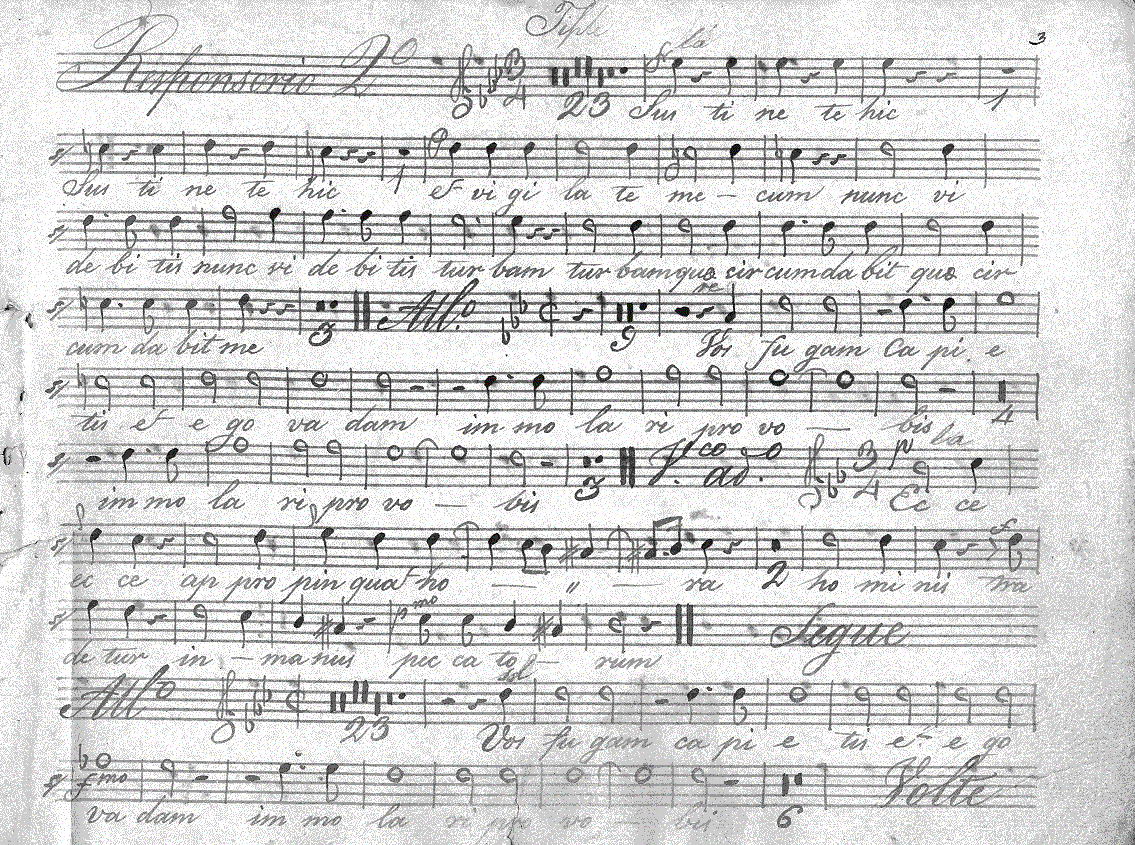 Tiple
3
Responsorio 2º 3 4 23 la
Sus ti ne te hic 1
Sus ti ne te hic 1 et vi gi la te me - cum nunc vi
de bi tis nunc vi de bi tis tur bam tur bam quæ cir cum da bit quæ cir
3 All.º 9 re
cum da bit me Vos fu gam Ca pi e
4
tis et e go va dam im mo la ri pro vo — bis
3 3 4 p la
im mo la ri pro vo — bis Ec ce
2 f
ec ce ap pro pin quat ho — „ — ra ho mi nis tra
pmo Segue
de tur in - ma nus pec ca to - rum
Allº 23 sol
Vos fu gam ca pi e tis et e go
fmo 6 Volte
va dam im mo la ri pro vo — bis